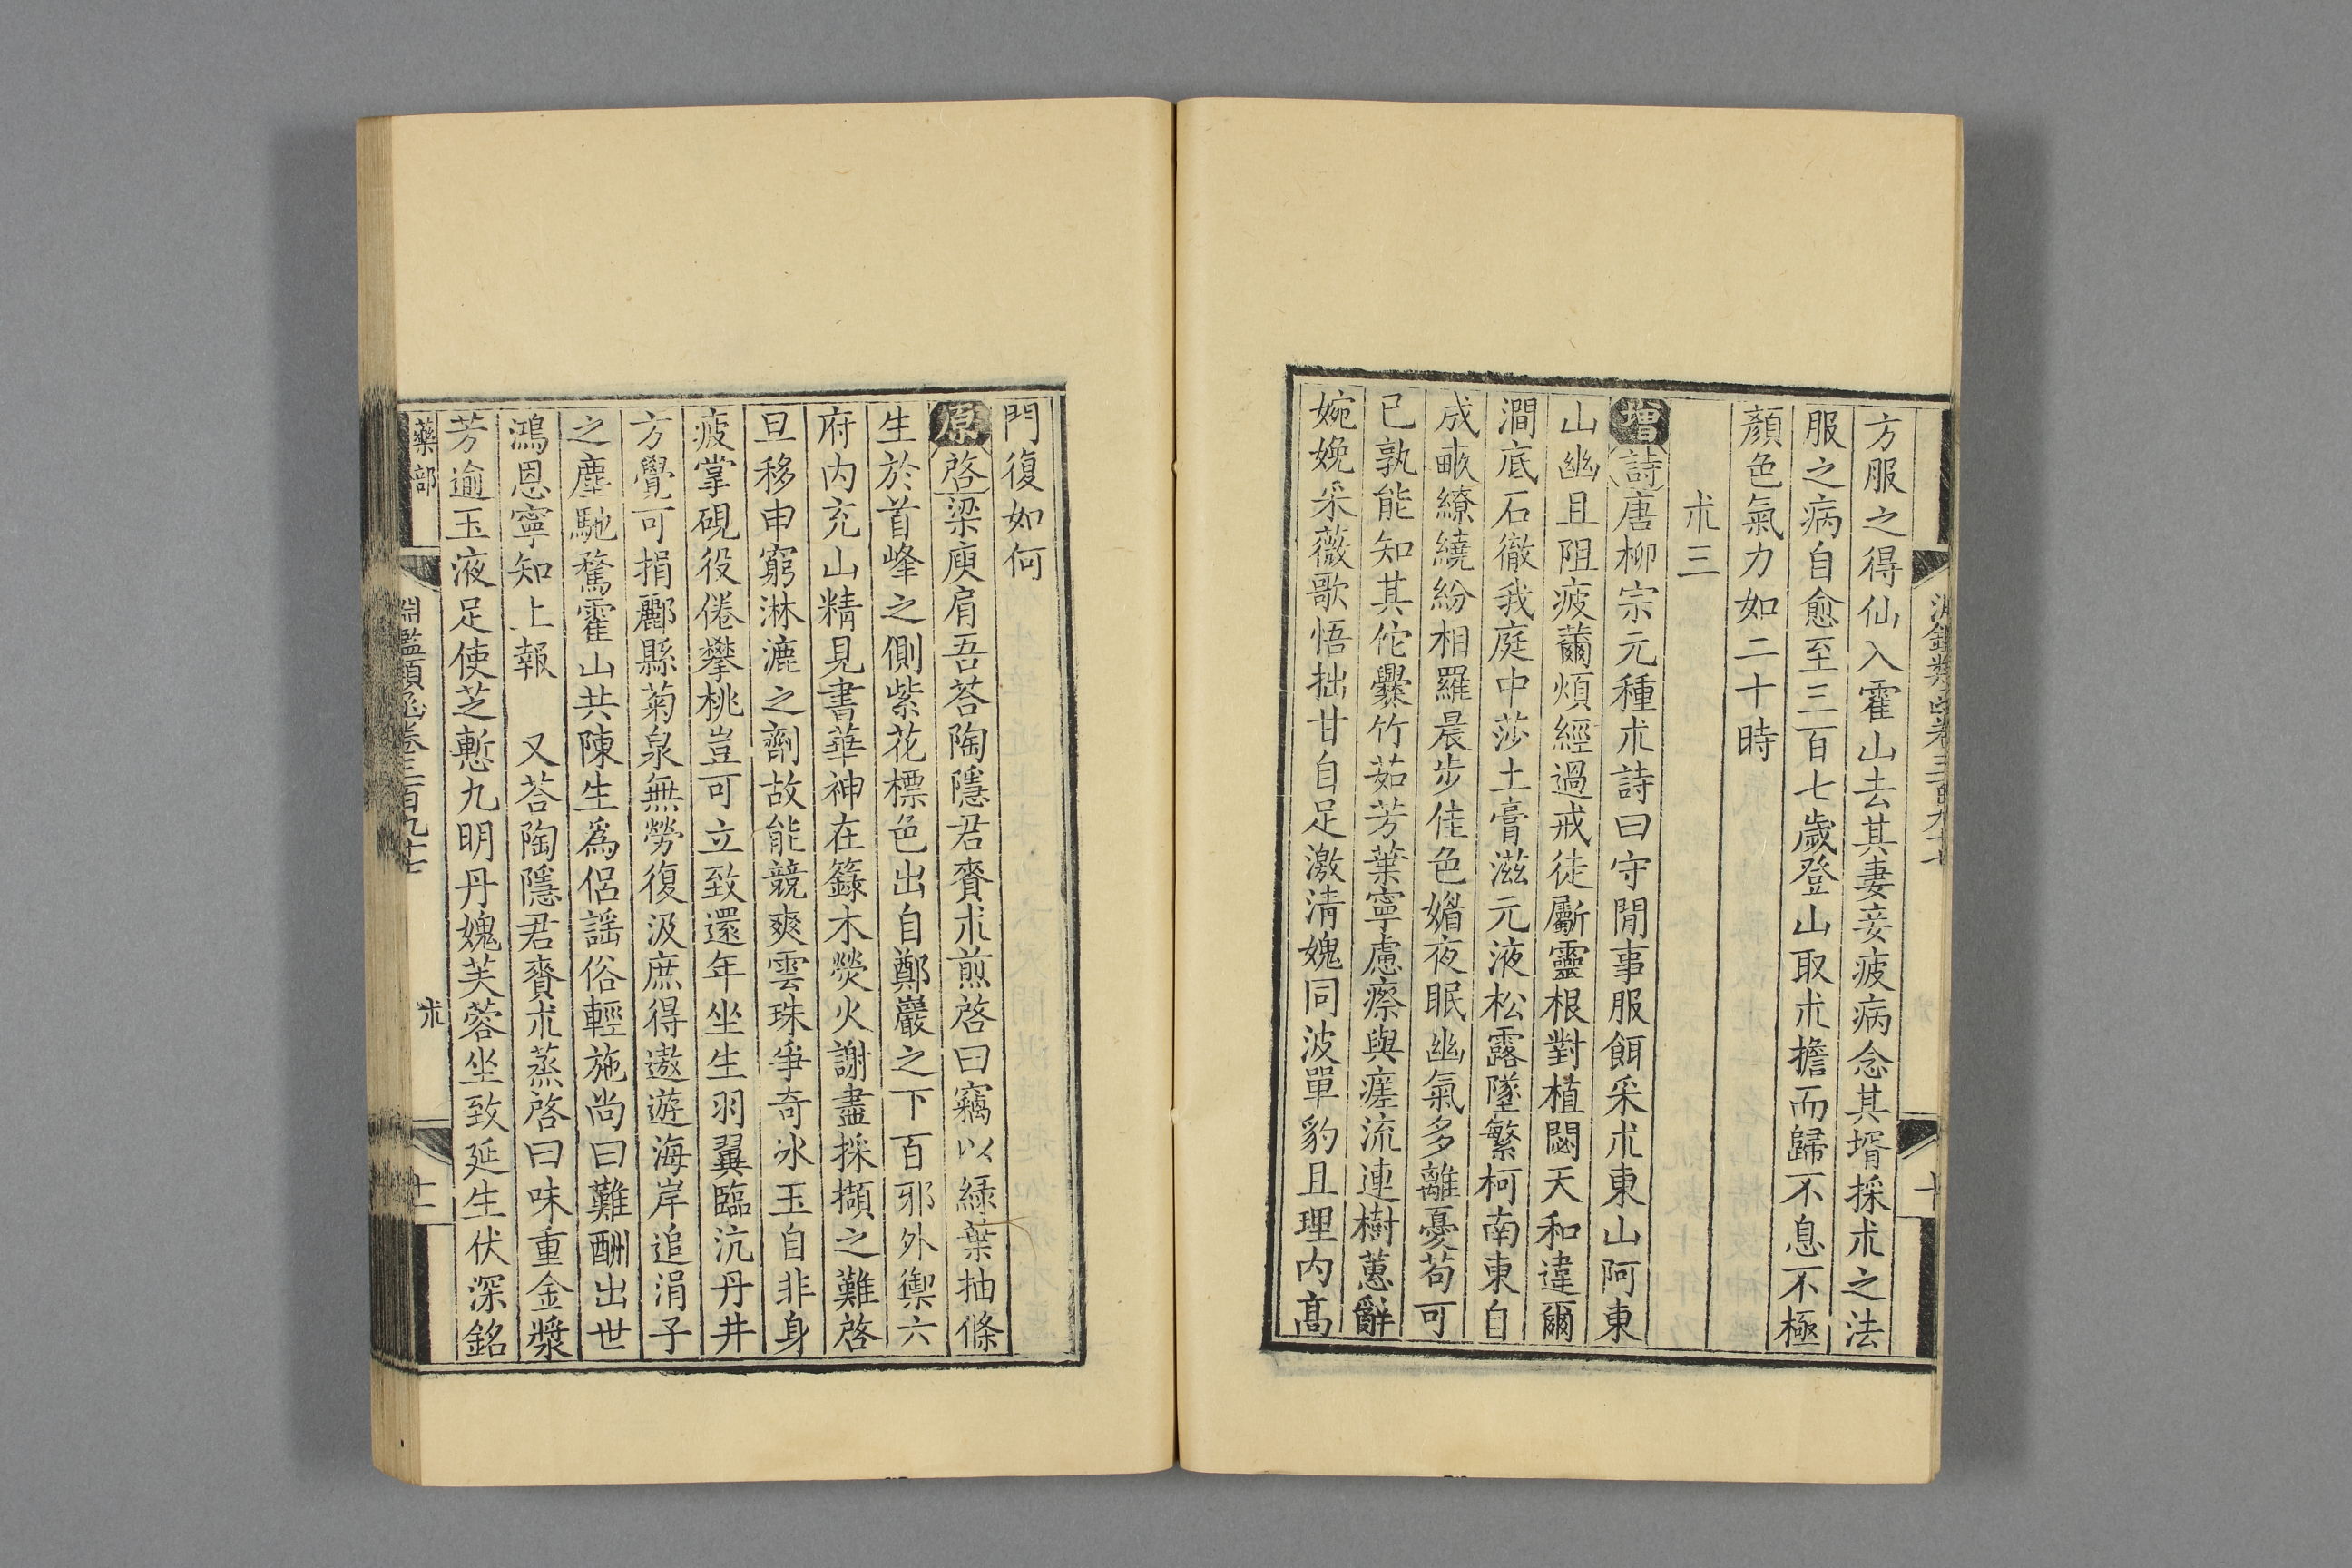 方服之得仙入霍山去其妻妾疲病念其壻採朮之法
服之病自愈至三百七歲登山取朮擔而歸不息不極
顏色氣力如二十時
朮三
增詩唐柳宗元種朮詩曰守閒事服餌采朮東山阿東
山幽且阻疲薾煩經過戒徒斸靈根對植閟天和違爾
澗底石徹我庭中莎土膏滋元液松露墜繁柯南東自
成畝繚繞紛相羅晨步佳色媚夜眠幽氣多離憂苟可
已孰能知其佗爨竹茹芳葉寧慮瘵與瘥流連樹蕙辭
婉娩采薇歌悟拙甘自足激清媿同波單豹且理內高
門復如何
原啓梁庾肩吾荅陶隱君賚朮煎啓曰竊以綠葉抽條
生於首峰之側紫花標色出自鄭巖之下百邪外禦六
府內充山精見書華神在籙木熒火謝盡採擷之難啓
旦移申窮淋漉之劑故能競爽雲珠爭奇冰玉自非身
疲掌硯役倦攀桃豈可立致還年坐生羽翼臨沆丹井
方覺可捐酈縣菊泉無勞復汲庶得遨遊海岸追涓子
之塵馳騖霍山共陳生爲侶謡俗輕施尚曰難酬出世
鴻恩寧知上報　又荅陶隱君賚朮蒸啓曰味重金漿
芳逾玉液足使芝慙九明丹媿芙蓉坐致延生伏深銘
藥部
淵鑑類函卷三百九十七
朮
十一